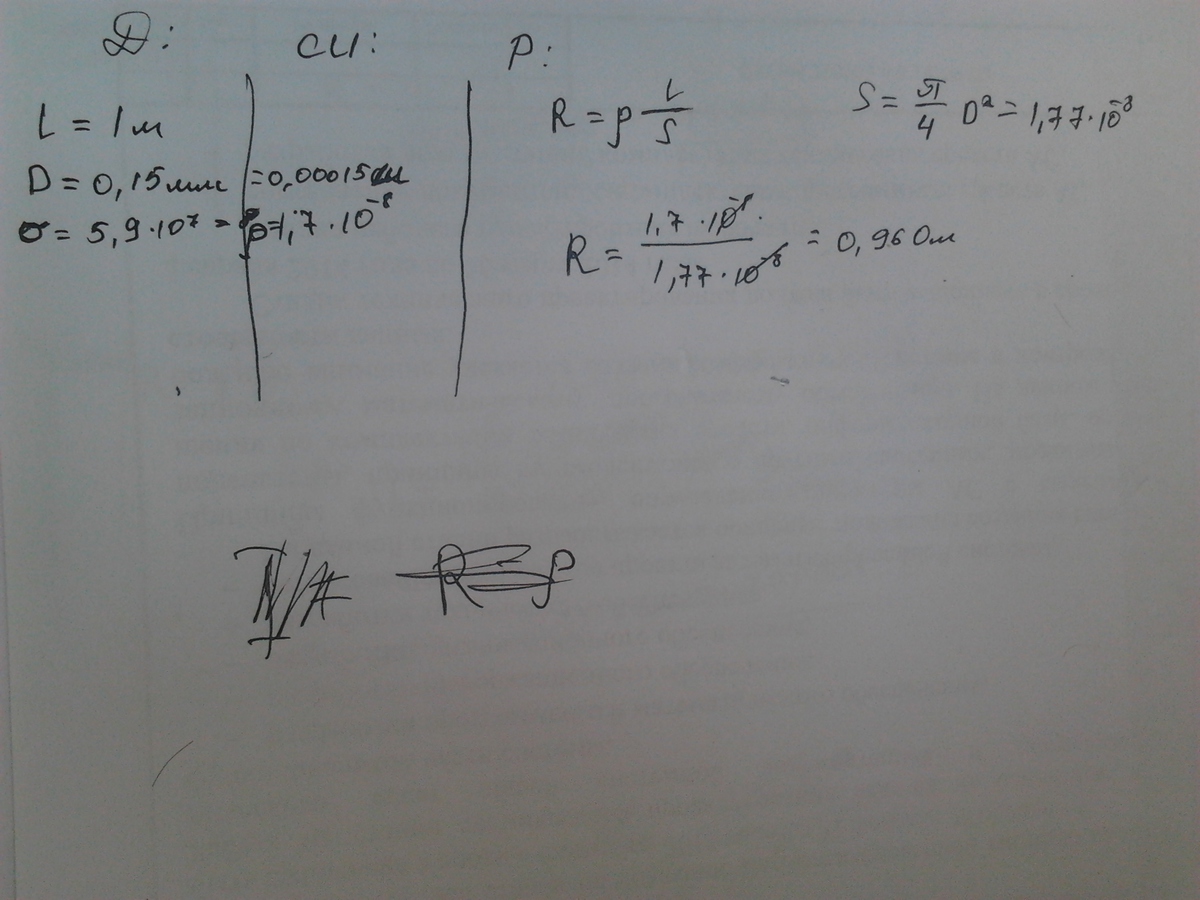 Д: СИ: Р:
L = 1м
D = 0,15мм = 0,00015м
σ = 5,9·10⁷ = ρ=1,7·10⁻⁸
R = ρ L/S
S = π/4 D² = 1,77·10⁻⁸
R = 1,7·10⁻⁸· / 1,77·10⁻⁸ = 0,96 Ом